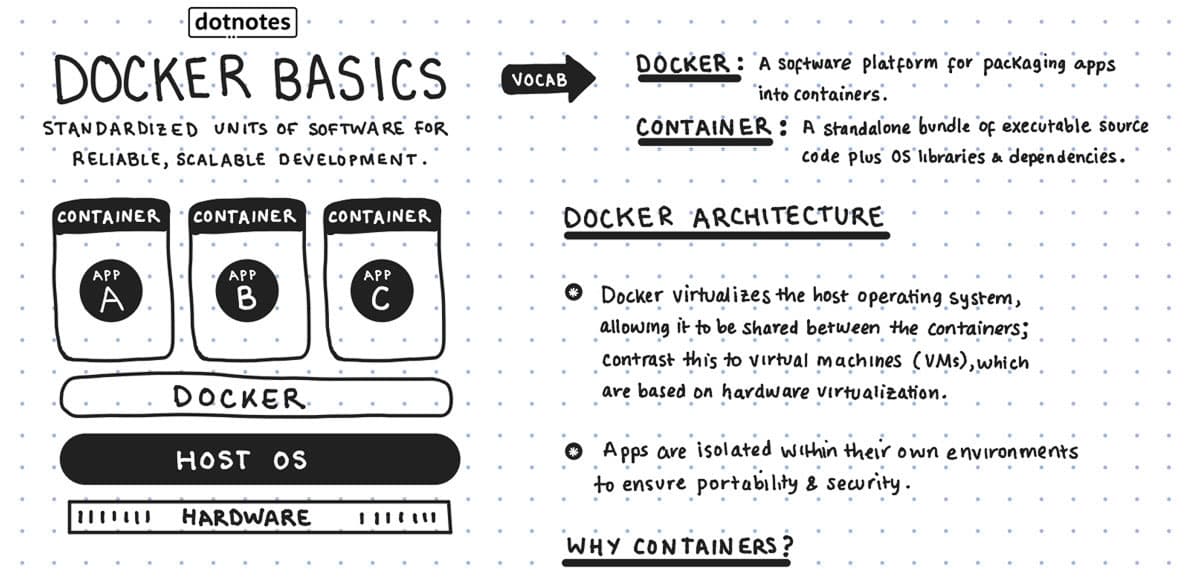 dotnotes
DOCKER BASICS
STANDARDIZED UNITS OF SOFTWARE FOR
RELIABLE, SCALABLE DEVELOPMENT.
CONTAINER CONTAINER CONTAINER
APP APP APP
A B C
DOCKER
HOST OS
HARDWARE
VOCAB
DOCKER: A software platform for packaging apps
into containers.
CONTAINER: A standalone bundle of executable source
code plus OS libraries & dependencies.
DOCKER ARCHITECTURE
Docker virtualizes the host operating system,
allowing it to be shared between the containers;
contrast this to virtual machines (VMs), which
are based on hardware virtualization.
Apps are isolated within their own environments
to ensure portability & security.
WHY CONTAINERS?